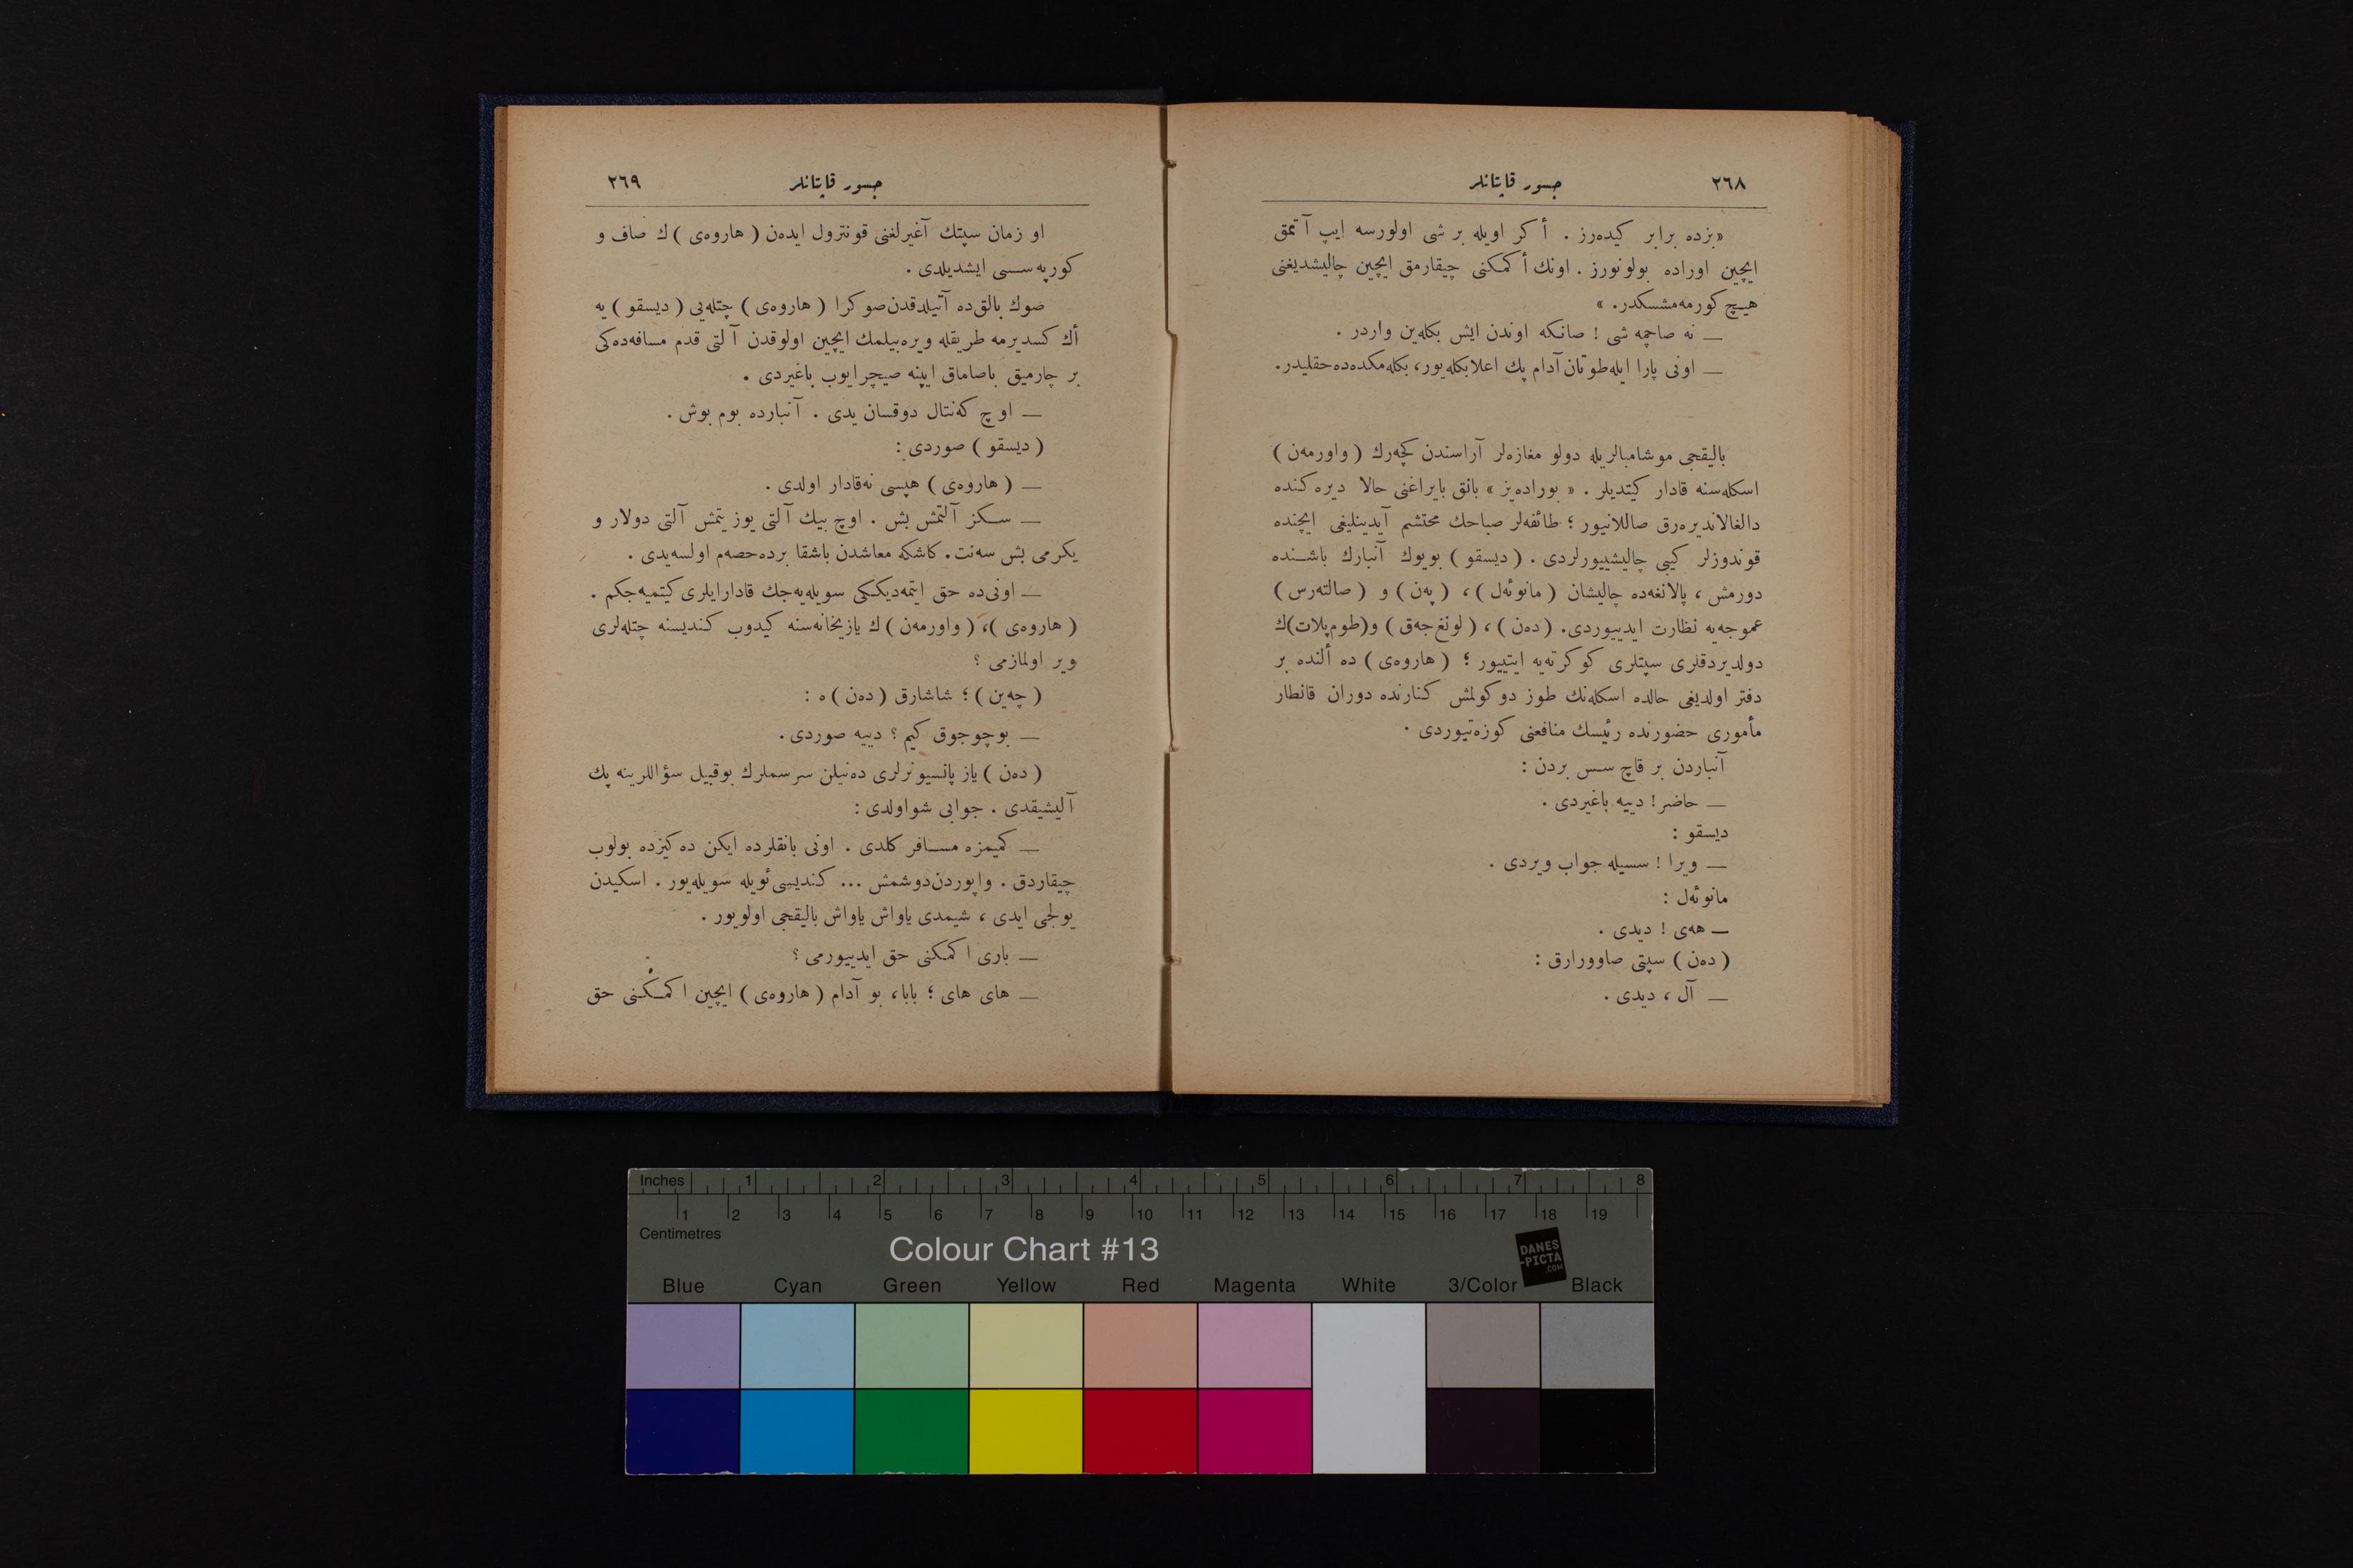 ٢٦٨
جسور قاپتانلر
«بزده برابر كیده‌رز . أكر اویله بر شی اولورسه ایپ آتمق
ایچین اوراده بولونورز . اونك أكمكنی چیقارمق ایچین چالیشدیغنی
هیچ كورمه‌مشسكدر. »
— نه صاچمه شی ! صانكه اوندن ایش بكله‌ین واردر .
— اونی پارا ایله‌طوتان آدام پك اعلابكله‌یور، بكله‌مكده‌ده‌حقلیدر.
بالیقجی موشامبالریله دولو مغازه‌لر آراسندن كچه‌رك (واورمه‌ن)
اسكله‌سنه قادار كیتدیلر . « بوراده‌یز » بانق بایراغنی حالا دیره‌كنده
دالغالاندیره‌رق صاللانیور ؛ طائفه‌لر صباحك محتشم آیدینلیغی ایچنده
قوندوزلر كیبی چالیشییورلردی . (دیسقو) بویوك آنبارك باشنده
دورمش ، پالانغه‌ده چالیشان (مانوئه‌ل) ، (په‌ن) و (صالته‌رس)
عموجه‌یه نظارت ایدییوردی. (ده‌ن) ، (لونغ‌جه‌ق) و(طوم‌پلات)ك
دولدیردقلری سپتلری كوكرته‌یه ایتییور ؛ (هاروه‌ی) ده ألنده بر
دفتر اولدیغی حالده اسكله‌نك طوز دوكولمش كنارنده دوران قانطار
مأموری حضورنده رئیسك منافعنی كوزه‌تییوردی .
آنباردن بر قاچ سس بردن :
— حاضر! دییه باغیردی .
دیسقو :
— ویرا ! سسیله جواب ویردی .
مانوئه‌ل :
— هه‌ی ! دیدی .
(ده‌ن) سپتی صاوورارق :
— آل ، دیدی .
جسور قاپتانلر
٢٦٩
او زمان سپتك آغیرلغنی قونترول ایده‌ن (هاروه‌ی)ك صاف و
كورپه سسی ایشدیلدی .
صوك بالق‌ده آتیلدقدن‌صوكرا (هاروه‌ی) چتله‌یی (دیسقو) یه
أك كسدیرمه طریقله ویره‌بیلمك ایچین اولوقدن آلتی قدم مسافه‌ده‌كی
بر چارمیق باصاماق ایپنه صیچرایوب باغیردی .
— اوچ كه‌نتال دوقسان یدی . آنبارده بوم بوش .
(دیسقو) صوردی :
— (هاروه‌ی) هپسی نه‌قادار اولدی .
— سكز آلتمش بش . اوچ بیك آلتی یوز یتمش آلتی دولار و
یكرمی بش سه‌نت. كاشكه معاشدن باشقا برده‌حصه‌م اولسه‌یدی .
— اونی‌ده حق ایتمه‌دیككی سویله‌یه‌جك قادارایلری كیتمیه‌جكم .
(هاروه‌ی)، (واورمه‌ن)ك یازیخانه‌سنه كیدوب كندیسنه چتله‌لری
ویر اولمازمی ؟
(چه‌ین) ؛ شاشارق (ده‌ن)ه :
— بوچوجوق كیم ؟ دییه صوردی.
(ده‌ن) یاز پانسیونرلری ده‌نیلن سرسملرك بوقبیل سؤاللرینه پك
آلیشیقدی . جوابی شواولدی :
— كمیمزه مسافر كلدی . اونی بانقلرده ایكن ده‌كیزده بولوب
چیقاردق . واپوردن‌دوشمش ... كندیسی‌ئویله سویله‌یور . اسكیدن
یولجی ایدی ، شیمدی یاواش یاواش بالیقجی اولویور .
— باری اكمكنی حق ایدییورمی ؟
— های های ؛ بابا، بو آدام (هاروه‌ی) ایچین اكمكنی حق
Inches 1 2 3 4 5 6 7 8
1 2 3 4 5 6 7 8 9 10 11 12 13 14 15 16 17 18 19
Centimetres
Colour Chart #13
DANES-PICTA.COM
Blue Cyan Green Yellow Red Magenta White 3/Color Black